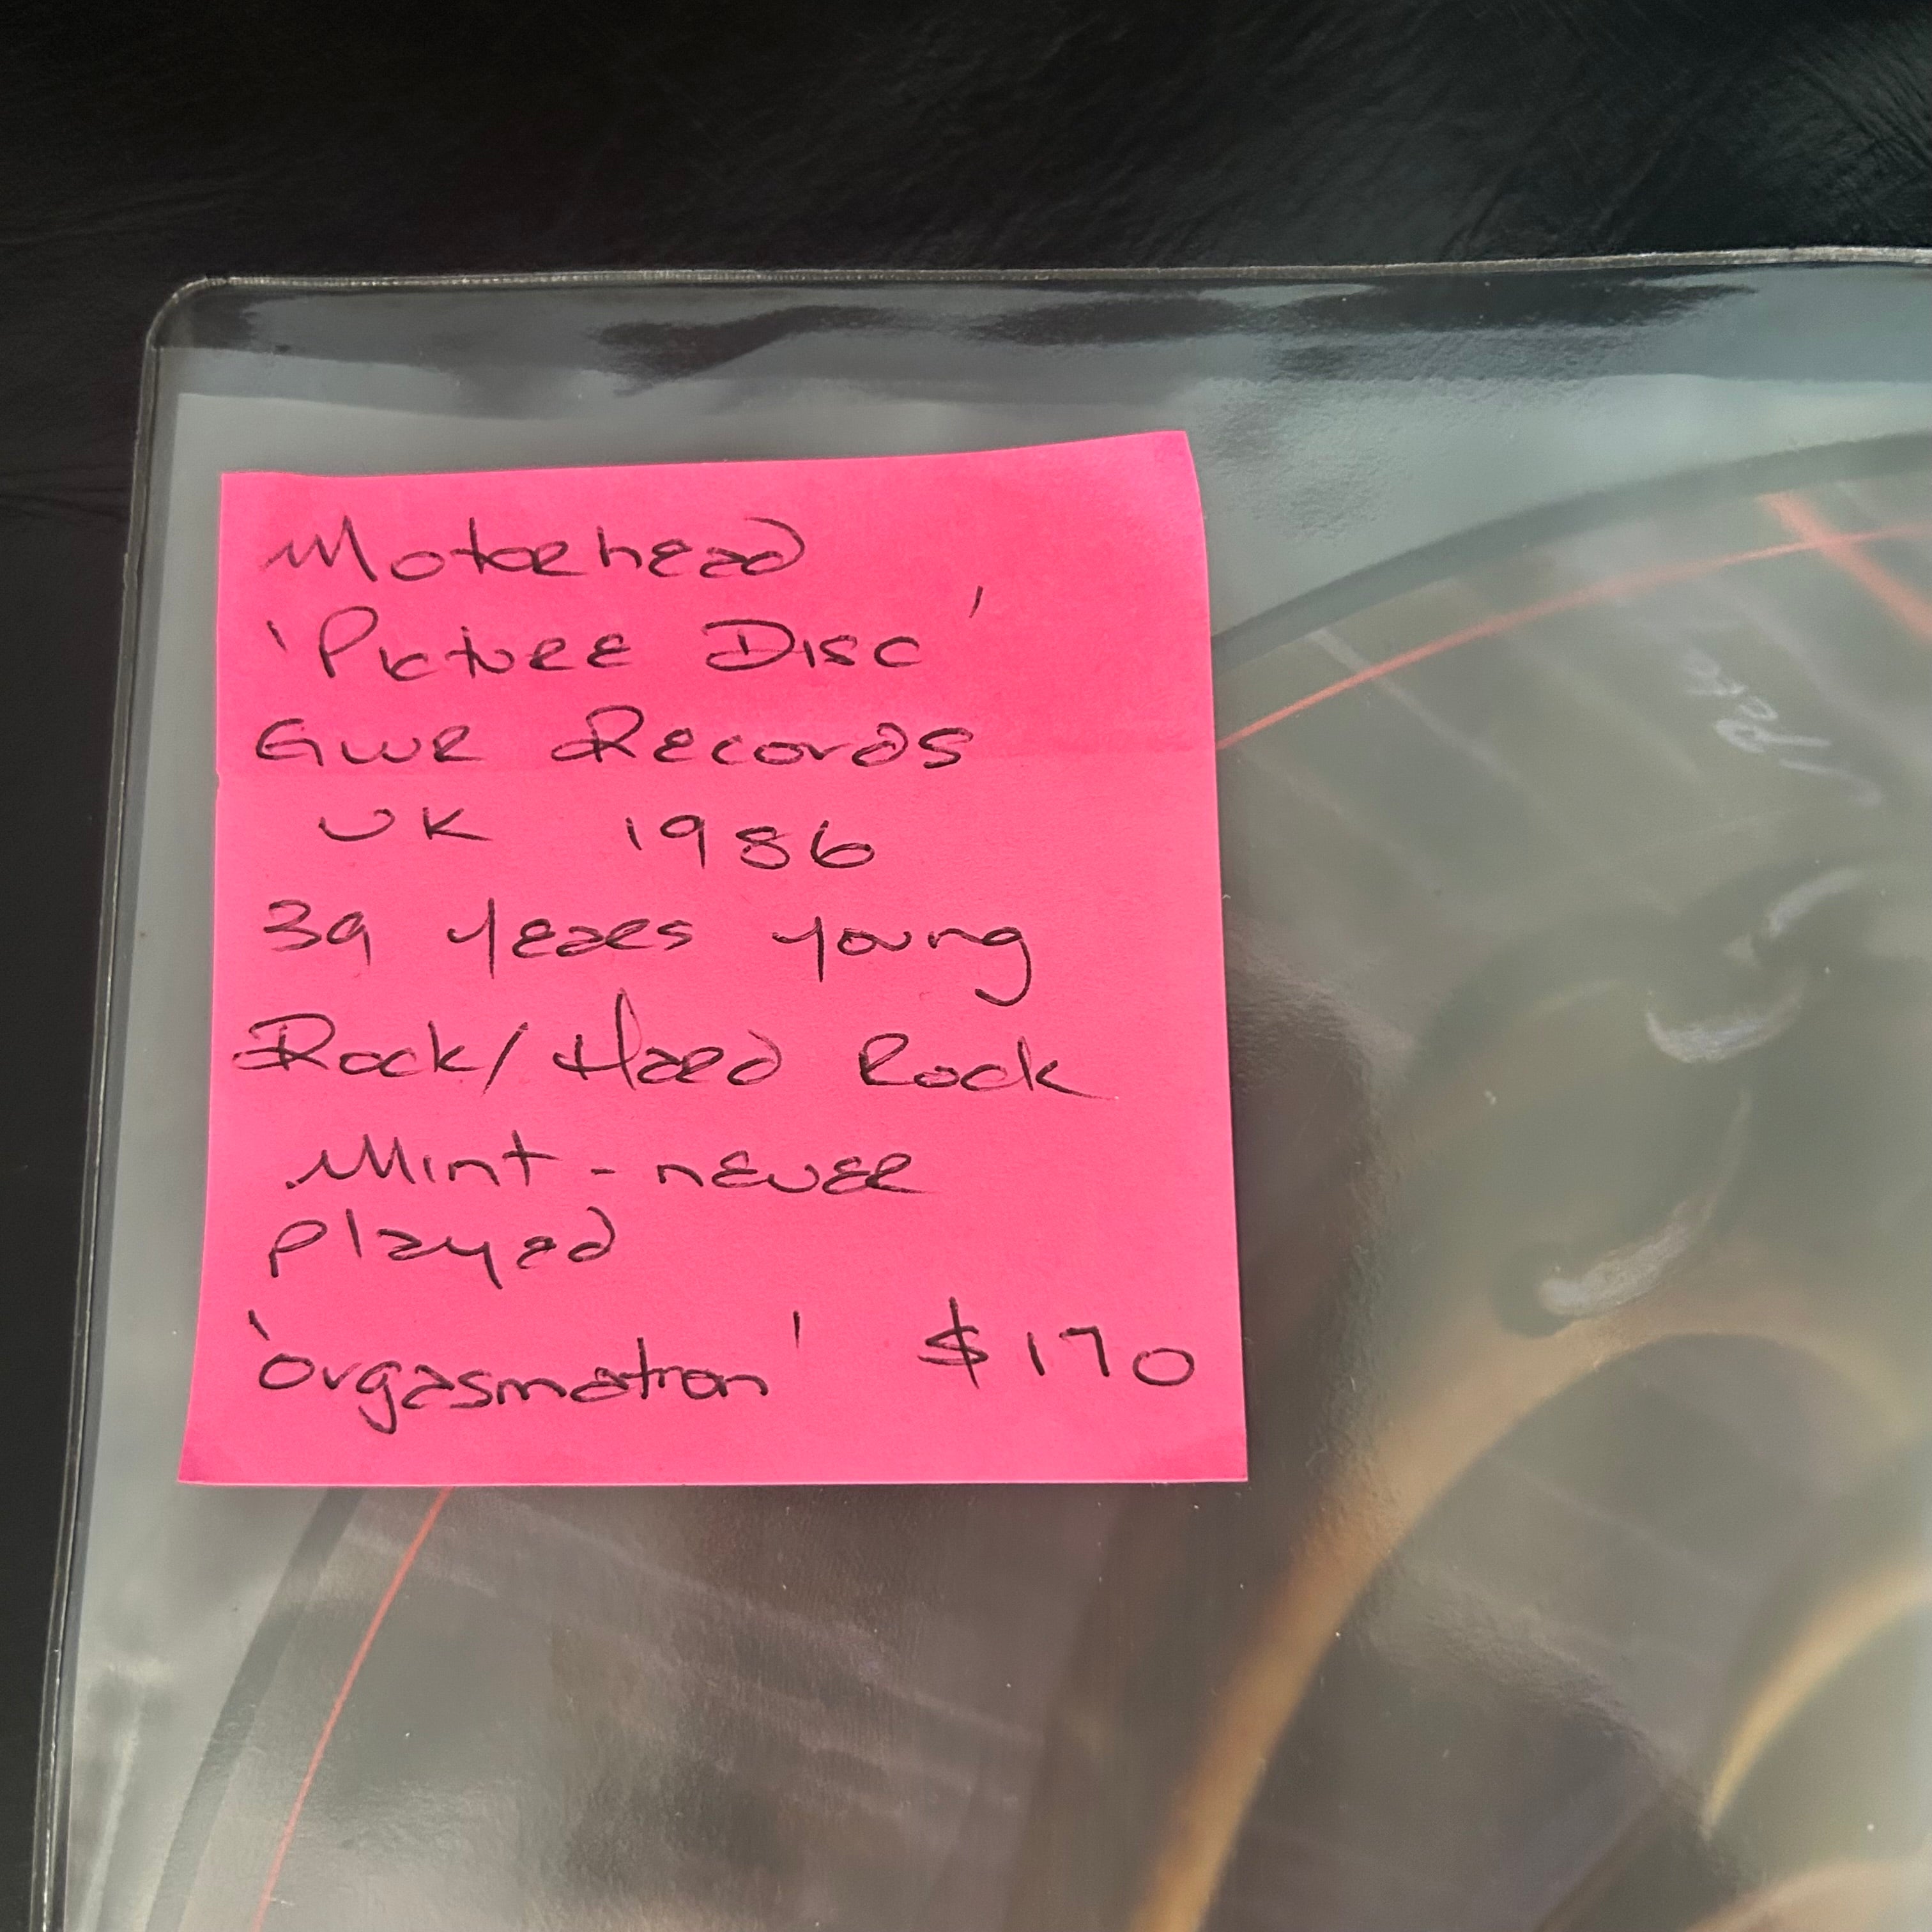 Motorhead
'Picture Disc'
GWR Records
UK 1986
39 years young
Rock/Hard Rock
Mint - never
played
'orgasmatron' $170